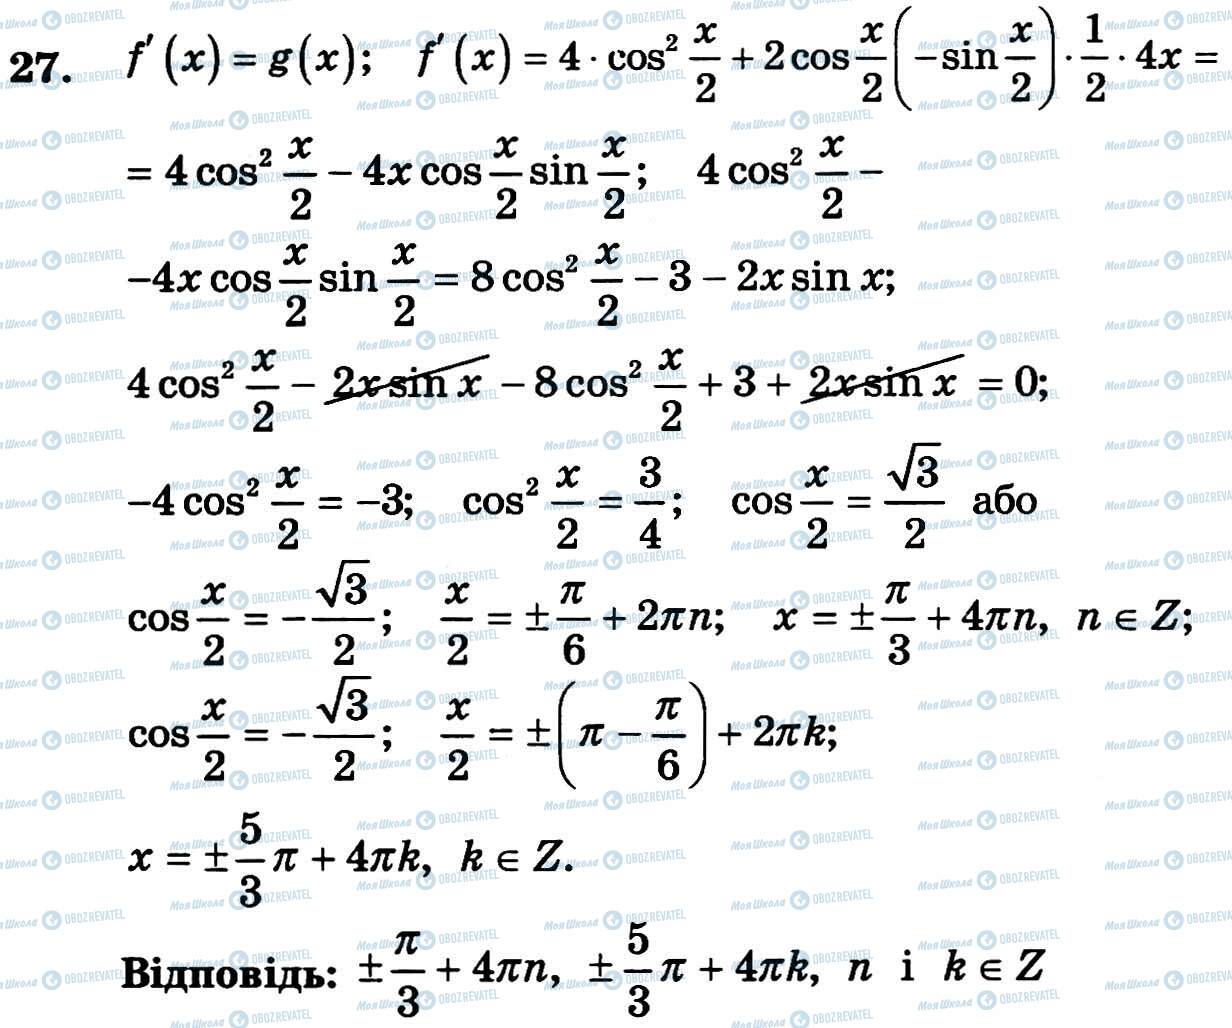 27. f′(x) = g(x); f′(x) = 4 · cos² x/2 + 2cos x/2 (−sin x/2) · 1/2 · 4x =
= 4 cos² x/2 − 4x cos x/2 sin x/2; 4 cos² x/2 −
−4x cos x/2 sin x/2 = 8 cos² x/2 − 3 − 2x sin x;
4 cos² x/2 − 2x sin x − 8 cos² x/2 + 3 + 2x sin x = 0;
−4 cos² x/2 = −3; cos² x/2 = 3/4; cos x/2 = √3/2 або
cos x/2 = −√3/2; x/2 = ±π/6 + 2πn; x = ±π/3 + 4πn, n ∈ Z;
cos x/2 = −√3/2; x/2 = ±(π − π/6) + 2πk;
x = ±5/3 π + 4πk, k ∈ Z.
Відповідь: ±π/3 + 4πn, ±5/3 π + 4πk, n і k ∈ Z